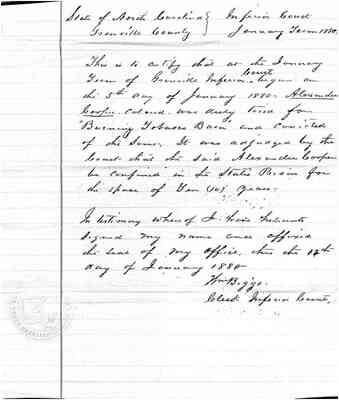 State of North Carolina } Inferior Court
Granville County } January Term 1880.
This is to certify that at the January
Term of Granville Inferior Court begun on
the 5th day of January 1880. Alexander
Cooper colored was duly tried for
Burning Tobacco Barn and convicted
of the same. It was adjudged by the
Court that the said Alexander Cooper
be confined in the States Prison for
the space of Ten (10) years.
In testimony whereof I have hereunto
signed my name and affixed
the seal of my office, this the 12th
day of January 1880
Clerk Inferior Court,